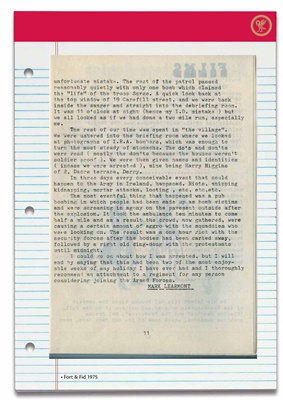 FILMS
unfortunate mistake. The rest of the patrol passed
reasonably quietly with only one bomb which claimed
the "life" of the troop Sarge. A quick look back at
the top window of 19 street, and we were back
inside the sangar and straight into the debriefing room.
It was 11 o'clock at night (hence my I.D. mistake ) but
we all looked as if we had done a two mile run, especially
me.
The rest of our time was spent in "the village".
We were ushered into the briefing room where we looked
at photographs of I.R.A. bombers, which was enough to
turn the most steady of stomachs. The do's and dont's
were read ( mostly the don'ts because the houses weren't
soldier proof ). We were then given names and identities
( incase we were arrested ), mine being Harry Higgins
of 2, terrace, Derry.
In three days every conceivable event that could
happen to the Army in Ireland, happened. Riots, sniping
kidnapping, mortar attacks, looting , etc. etc.etc.
The most eventful thing that happened was a pub
bombing in which people had been made up as bomb victims,
and were screaming in agony on the pavement outside after
the explosion. It took the ambulance ten minutes to come
half a mile and as a result the crowd, now gathered, were
causing a certain amount of aggro with the squaddies who
were looking on. The result was a one hour riot with the
security forces after the bodies had been carried away,
followed by a right old sing-song with the protestants
until midnight.
I could go on about how I was arrested, but I will
end by saying that this had been two of the most enjoy-
able weeks of any holiday I have ever had and I thoroughly
recommend an attachment to a regiment for any person
considering joining the Armed Forces.
MARK LEARMONT
11
• Fort & Fid 1975